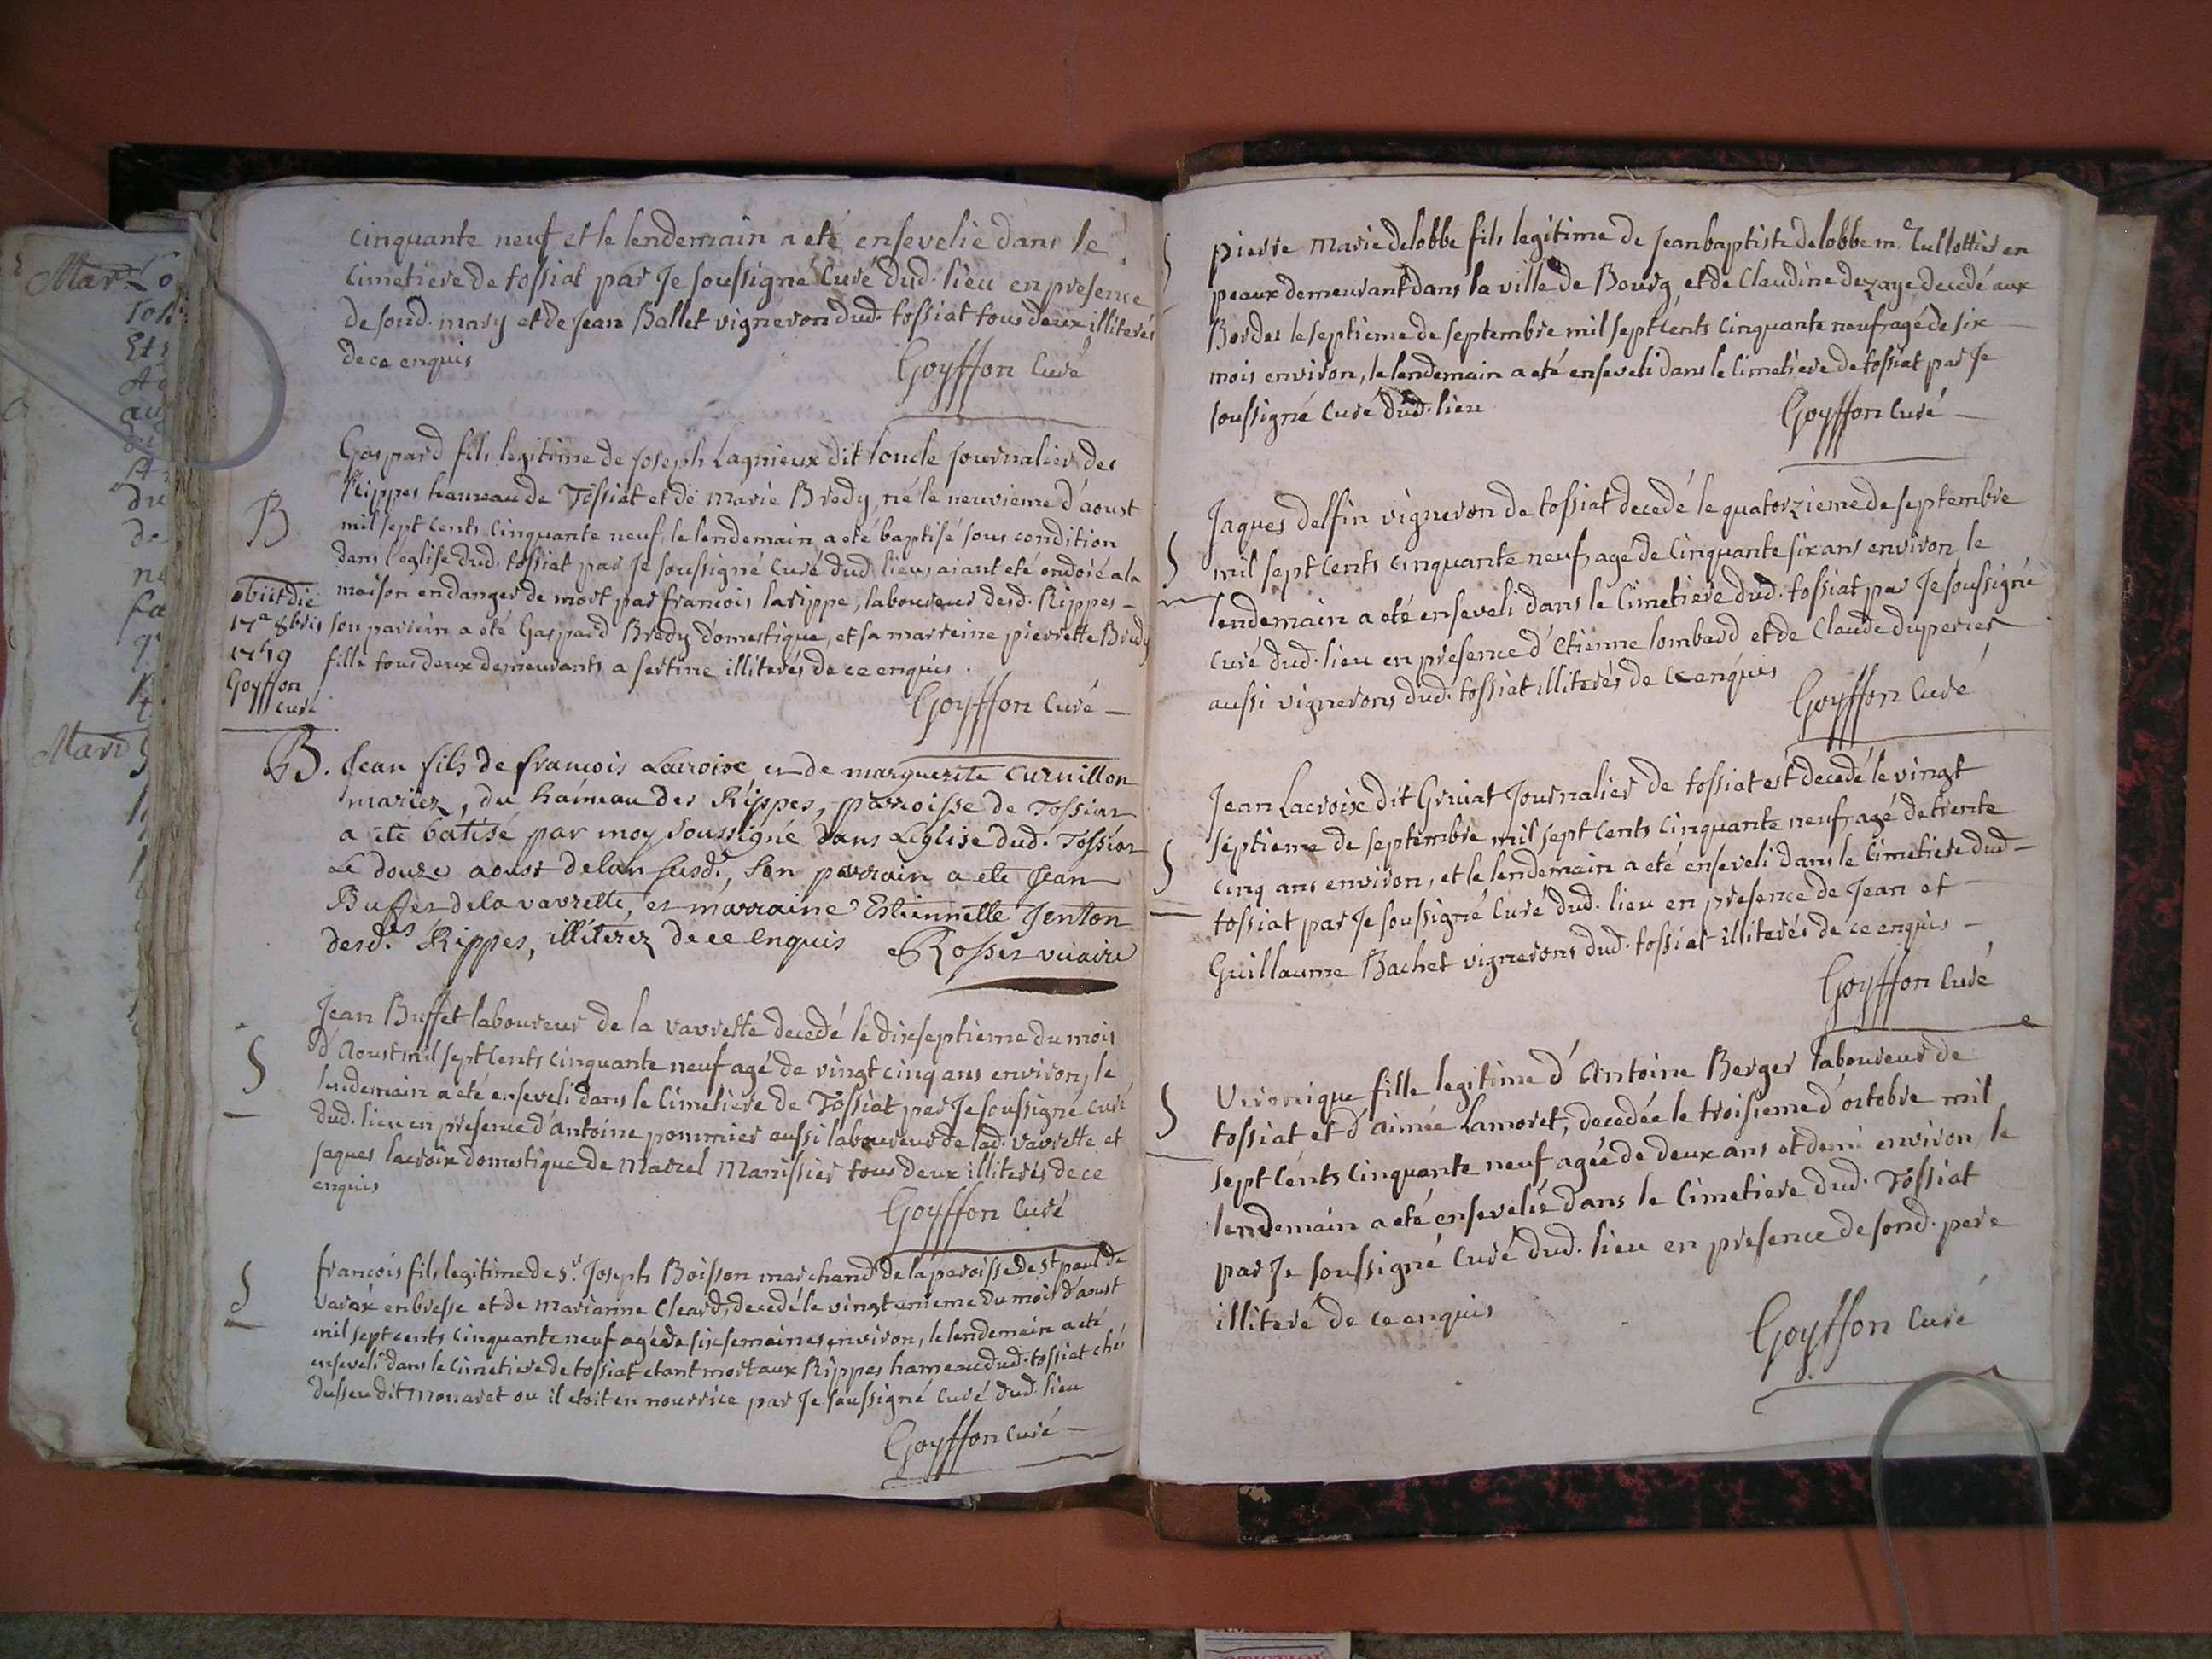 cinquante neuf et le lendemain a eté ensevelie dans le
Cimetiere de tossiat par Je soussigné Curé dud. lieu en presence
de sond. mary et de Jean Ballet vigneron dud. tossiat tous deux illiterés
de ce enquis
Goyffon Curé
Gaspard fils legitime de Joseph Lagnieux dit loncle Journalier des
Rippes hameau de Tossiat et de Marie Bredy, né le neuvieme d'aoust
B
mil sept cents cinquante neuf, le lendemain a eté baptisé sous condition
dans l'eglise dud. tossiat par Je soussigné Curé dud. lieu, aiant eté ondoié a la
maison en danger de mort par francois larippe, laboureur desd. Rippes -
son parrein a eté Gaspard Bredy domestique, et sa marreine pierrette Bredy
fille tous deux demeurants a sertine illiterés de ce enquis.
obiit die
17a 8bris
1759
Goyffon
curé
Goyffon Curé -
B. Jean fils de francois Lacroix et de marguerite Curnillon
mariez, du hameau des Rippes, parroisse de Tossiat
a eté batisé par moy Soussigné Dans L'eglise dud. Tossiat
Le douze aoust de lan susd., Son parrain a ete Jean
Buffet de la vavrette, et marraine Estiennette Jenton
desd.es Rippes, illiterez de ce Enquis
Rosset vicaire
Jean Buffet laboureur de la vavrette decedé le dixseptieme du mois
d'Aoust mil sept Cents cinquante neuf agé de vingt cinq ans environ, le
S
lendemain a eté enseveli dans le Cimetiere de Tossiat par Je soussigné curé
dud. lieu en presence d'antoine pommier aussi laboureur de lad. vavrette et
jaques lacroix domestique de Marcel Manissier tous deux illiterés de ce
enquis
Goyffon Curé
S
francois fils legitime de Sr. Joseph Boisson marchand de la paroisse de St paul de
varax en bresse et de Marianne Cleard, decedé le vingt unieme du mois d'aoust
mil sept cents cinquante neuf agé de six semaines environ, le lendemain a eté
enseveli dans le Cimetiere de tossiat etant mort aux Rippes hameau dud. tossiat chés
dit Monaret ou il etoit en nourrice par Je soussigné Curé dud. lieu
Goyffon curé -
pierre Marie delobbe fils legitime de Jean baptiste delobbe en
peaux demeurant dans la ville de Bourg, et de Claudine dezaye, decedé aux
Bordes le septieme de septembre mil sept cents cinquante neuf agé de six
mois environ, le lendemain a eté enseveli dans le Cimetiere de tossiat par Je
soussigné Curé dud. lieu
Goyffon Curé -
Jaques delfin vigneron de tossiat decedé le quatorzieme de septembre
S
mil sept Cents cinquante neuf, agé de Cinquante six ans environ le
lendemain a eté enseveli dans le Cimetiere dud. tossiat par Je soussigné
curé dud. lieu en presence d'Etienne lombard et de Claude duperier
aussi vignerons dud. tossiat illiterés de ce enquis
Goyffon Curé
Jean Lacroix dit Gruiat Journalier de tossiat est decedé le vingt
septieme de septembre mil sept cents cinquante neuf, agé de trente
S
cinq ans environ, et le lendemain a eté enseveli dans le Cimetiere dud -
tossiat par Je soussigné Curé dud. lieu en presence de Jean et
Guillaume Bachet vignerons dud. tossiat illiterés de ce enquis -
Goyffon Curé
Veronique fille legitime d'Antoine Berger laboureur de
S
tossiat et d'aimée Lamoret, decedée le troisieme d'octobre mil
sept Cents cinquante neuf agée de deux ans et demi environ, le
lendemain a eté ensevelie dans le Cimetiere dud. Tossiat
par Je soussigné Curé dud. lieu en presence de sond. pere
illiteré de ce enquis
Goyffon Curé